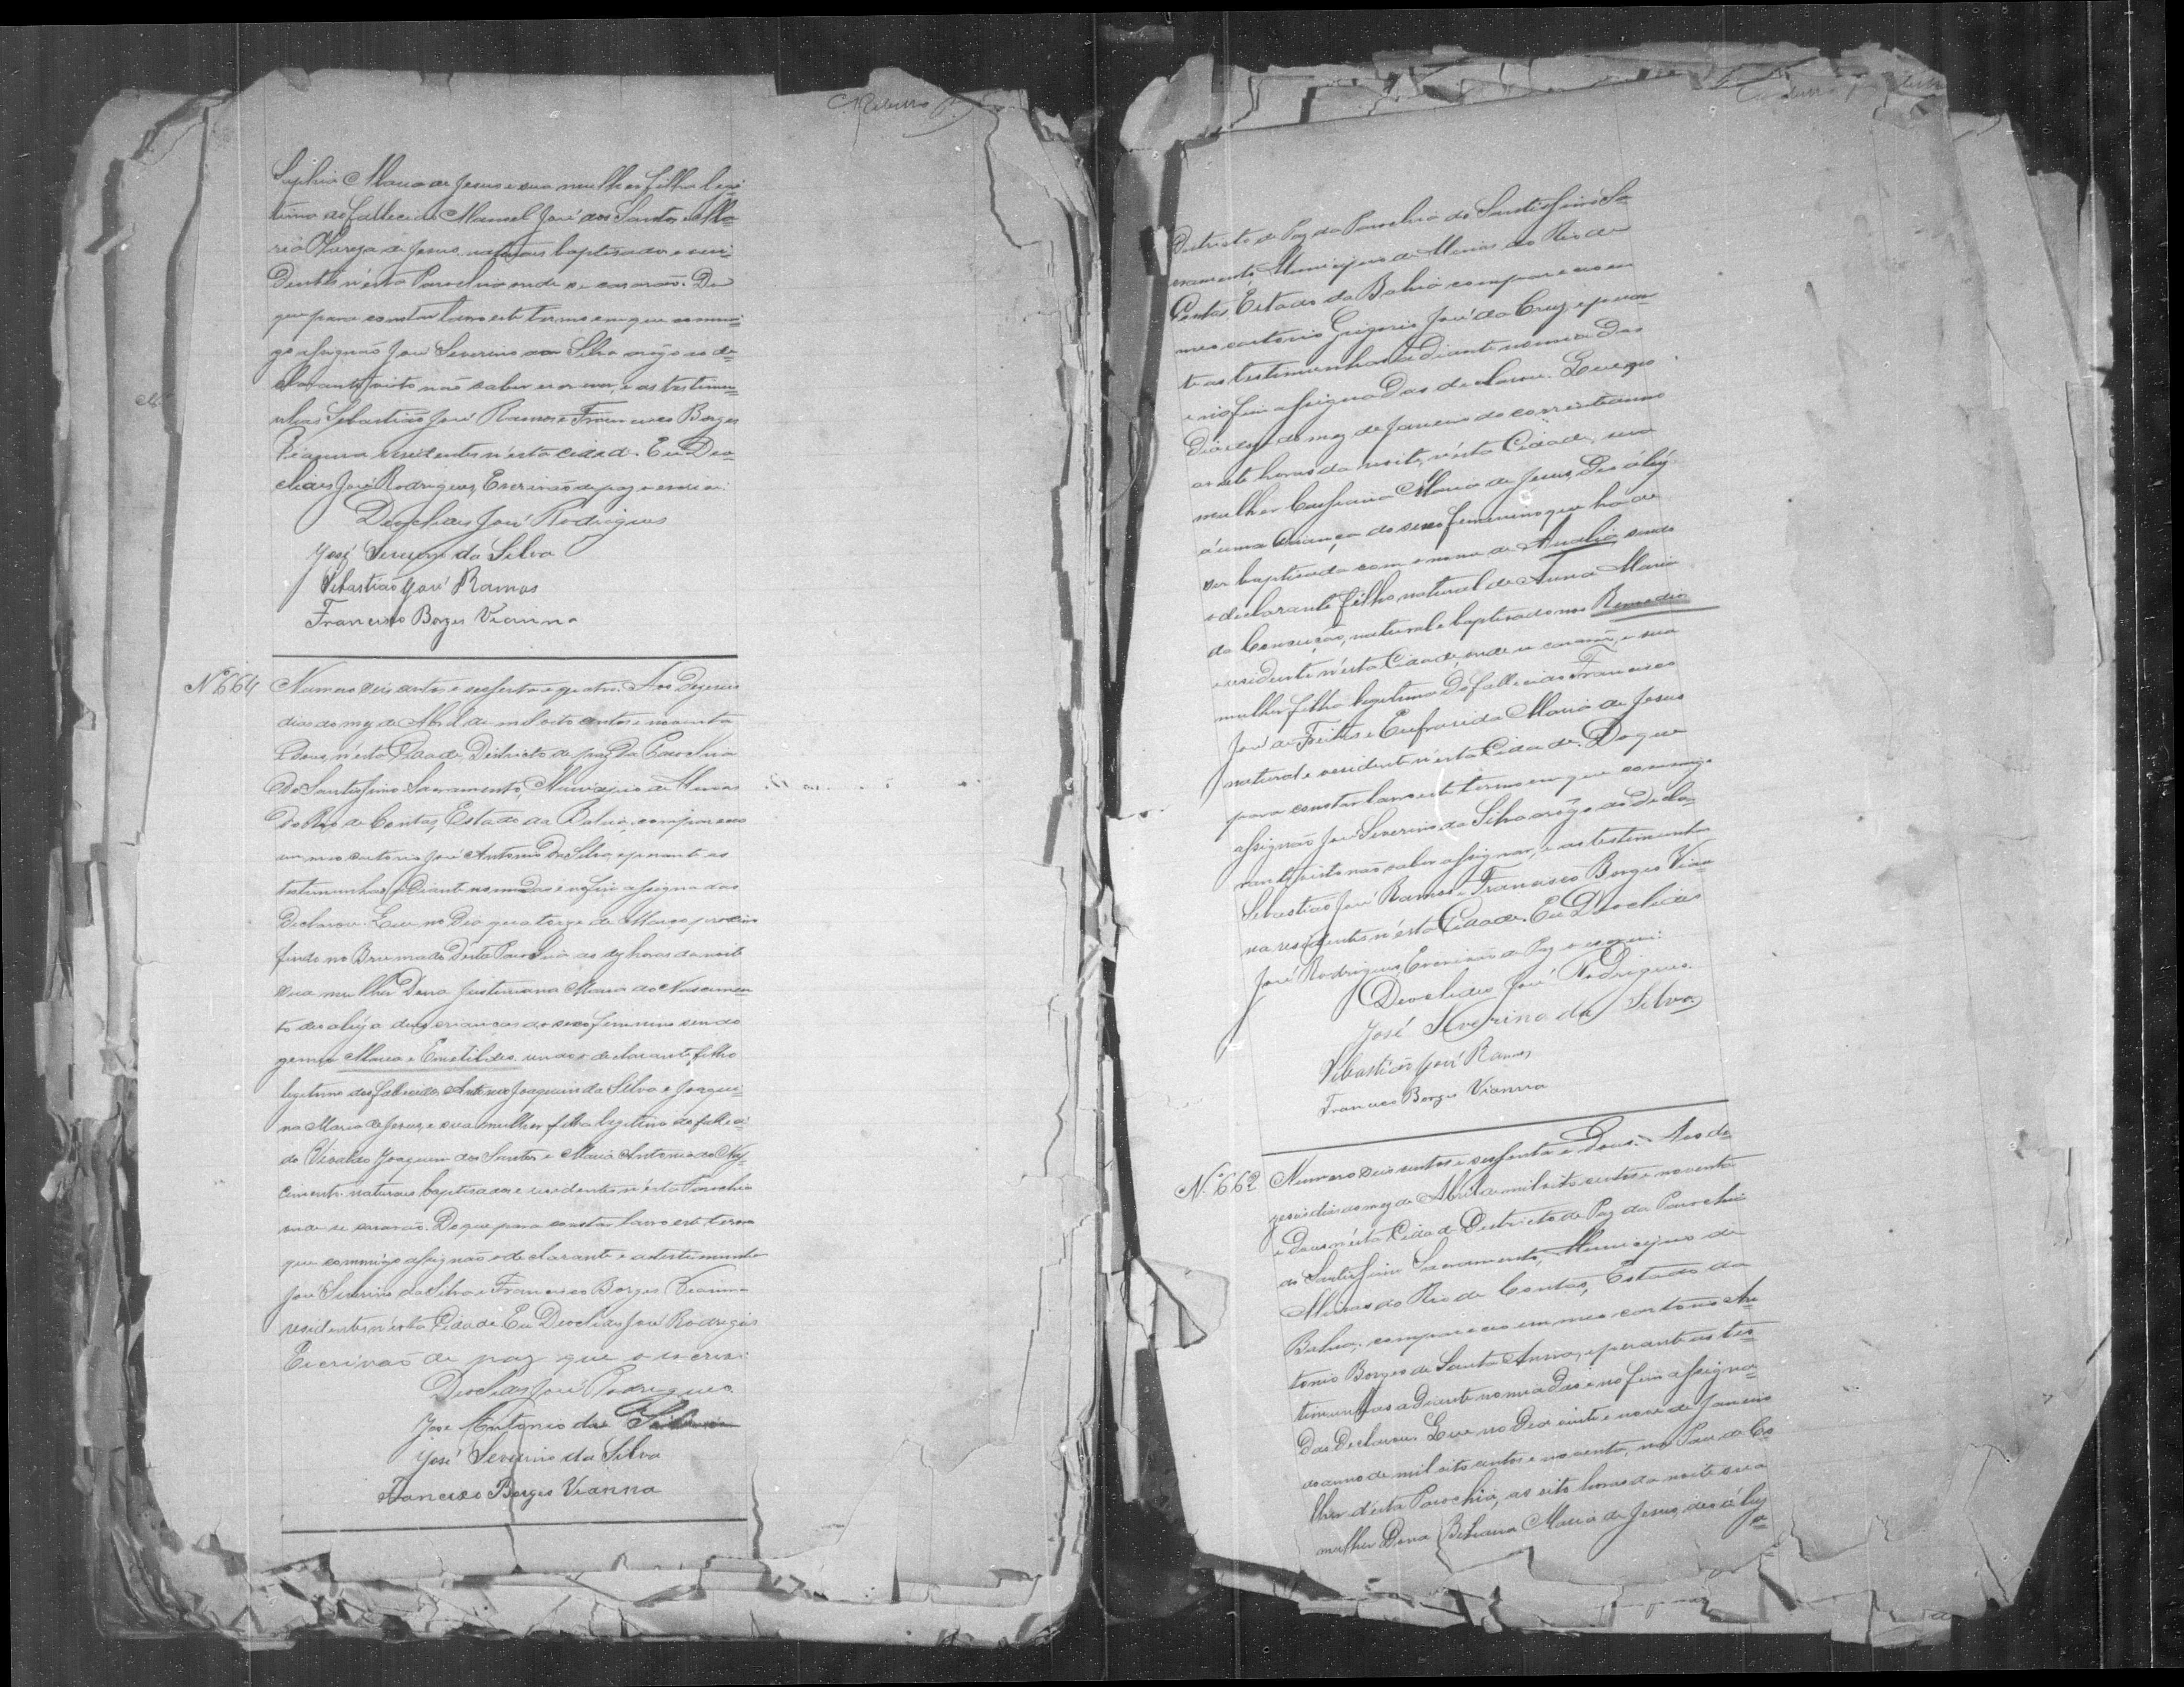 Ribeiro
Sophia Maria de Jesus e sua mulher filha legi-
tima do fallecido Manoel José dos Santos e Ma-
ria Thereza de Jesus, naturaes baptisados e resi-
dentes n'esta Parochia onde se casarão. Do
que para constar lavro este termo em que commi-
go assignão José Severino da Silva a rôgo do de-
clarante, visto não saber escrever, e as testemu-
nhas Sebastião José Ramos e Francisco Borges
Vianna residentes n'esta cidade. Eu Deo-
clides José Rodrigues, Escrivão de paz o escrevi.
Deoclides José Rodrigues
José Severino da Silva
Sebastião José Ramos
Francisco Borges Vianna
Nº 664 Numero seis centos e sessenta e quatro. Aos dezeseis
dias do mez de Abril de mil oito centos e noventa
e dous, n'esta Cidade, Districto de paz da Parochia
do Santissimo Sacramento, Municipio de Minas
do Rio de Contas, Estado da Bahia, compareceo
em meo cartorio José Antonio da Silva, e perante as
testemunhas adiante nomeadas e no fim assignadas
declarou: Que no dia quatorze de Março proximo
findo no Brumado desta Parochia as dez horas da noite
sua mulher Dona Justiniana Maria do Nascimen-
to deo a luz a duas crianças do sexo feminino sendo
gemeas Maria e Ernetildes, sendo o declarante filho
legitimo dos fallecidos Antonio Joaquim da Silva e Joaqui-
na Maria de Jesus, e sua mulher, filha legitima do falleci-
do Joaquim dos Santos e Maria Antonia do Nas-
cimento, naturaes baptisados e residentes n'esta Parochia
onde se casarão. Do que para constar lavro este termo
que commigo assignão o declarante e as testemunhas
José Severino da Silva e Francisco Borges Vianna
residentes n'esta Cidade. Eu Deoclides José Rodrigues
Escrivão de paz que o escrevi.
Deoclides José Rodrigues
José Antonio da Silva
José Severino da Silva
Francisco Borges Vianna
Districto de Paz da Parochia do Santissimo Sa-
cramento, Municipio de Minas do Rio de
Contas, Estado da Bahia compareceo em
meo cartorio Grigorio José da Cruz, e peran-
te as testemunhas adiante nomeadas
e no fim assignadas declarou: Que no
dia do mez de Janeiro do corrente anno
as sete horas da noite, n'esta Cidade, sua
mulher Maria de Jesus, deo á luz
á uma criança do sexo feminino que há de
ser baptisada com o nome de Amalia, sendo
o declarante filho natural de Anna Maria
da Conceição, natural e baptisado nos Remedios
e residente n'esta Cidade, onde se casarão, e sua
mulher filha legitima do fallecido Francisco
José de Freitas e Eufrasida Maria de Jesus
natural e residente n'esta Cidade. Do que
para constar lavro este termo em que commigo
assignão José Severino da Silva a rôgo do decla-
rante, visto não saber assignar, e as testemunhas
Sebastião José Ramos e Francisco Borges Vian-
na residentes n'esta Cidade. Eu Deoclides
José Rodrigues, Escrivão de Paz o escrevi.
Deoclides José Rodrigues.
José Severino da Silva
Sebastião José Ramos
Francisco Borges Vianna
Nº 662 Numero seis centos e sessenta e dous. Aos de-
zeseis dias do mez de Abril de mil oito centos e noventa
e dous n'esta Cidade Districto de Paz da Parochia
do Santissimo Sacramento, Municipio de
Minas do Rio de Contas, Estado da
Bahia, compareceo em meo cartorio An-
tonio Borges de Santa Anna, e perante as tes-
temunhas adiante nomeadas e no fim assigna-
das declarou: Que no dia vinte e nove de Janeiro
do anno de mil oito centos e noventa, no Pau de Co-
lher d'esta Parochia, as oito horas da noite sua
mulher Dona Maria de Jesus, deo á luz
a